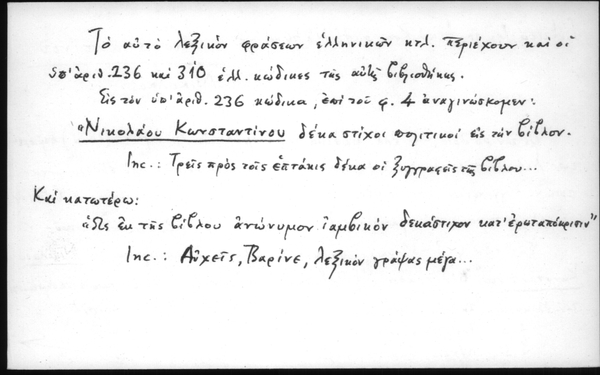 Τὸ αὐτὸ λεξικὸν φράσεων ἑλληνικῶν κτλ. περιέχουν καὶ οἱ
ὑπ' ἀριθ. 236 καὶ 310 ἑλλ. κώδικες τῆς αὐτῆς βιβλιοθήκης.
Εἰς τὸν ὑπ' ἀριθ. 236 κώδικα, ἐπὶ τοῦ φ. 4 ἀναγινώσκομεν:
"Νικολάου Κωνσταντίνου δέκα στίχοι πολιτικοὶ εἰς τὴν βίβλον.
Inc.: Τρεῖς πρὸς τοῖς ἑπτάκις δέκα οἱ ξυγγραφεῖς τῆς βίβλου...
Καὶ κατωτέρω:
ἐκ τῆς βίβλου ἀνώνυμον ἰαμβικὸν δεκάστιχον κατ' ἐρωταπόκρισιν"
Inc.: Αὐχεῖς, Βαρίνε, λεξικὸν γράψας μέγα...